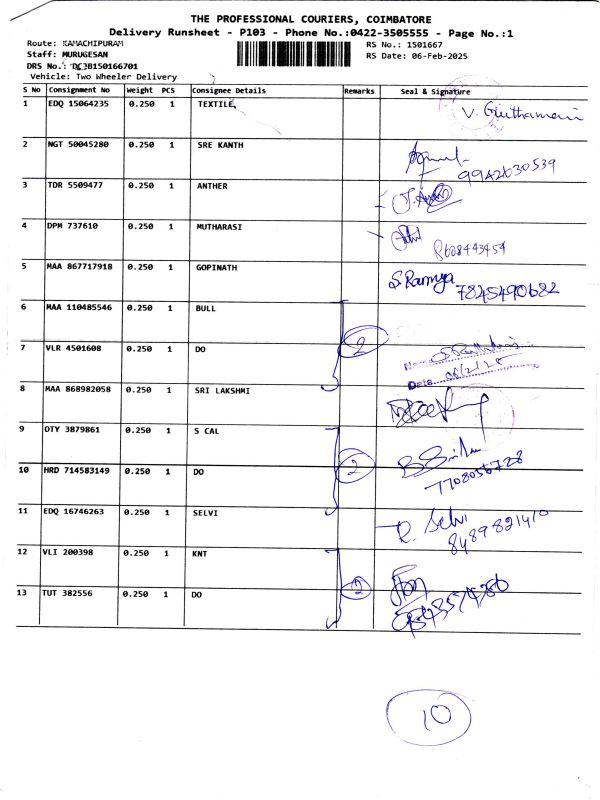 THE PROFESSIONAL COURIERS, COIMBATORE
Delivery Runsheet - P103 - Phone No.:0422-3505555 - Page No.:1
Route: KAMACHIPURAM
RS No.: 1501667
Staff: MURUGESAN
RS Date: 06-Feb-2025
DRS No.: DCJB150166701
Vehicle: Two Wheeler Delivery
S No Consignment No Weight PCS Consignee Details Remarks Seal & Signature
1 EDQ 15064235 0.250 1 TEXTILE
2 NGT 50045280 0.250 1 SRE KANTH
3 TDR 5509477 0.250 1 ANTHER
4 DPM 737610 0.250 1 MUTHARASI 8608443454
5 MAA 867717918 0.250 1 GOPINATH S. Ramya 7845490682
6 MAA 110485546 0.250 1 BULL
7 VLR 4501608 0.250 1 DO 2
Date
8 MAA 868982058 0.250 1 SRI LAKSHMI
9 OTY 3879861 0.250 1 S CAL
10 HRD 714583149 0.250 1 DO 2 7708056728
11 EDQ 16746263 0.250 1 SELVI R. Selvi 8489821410
12 VLI 200398 0.250 1 KNT
13 TUT 382556 0.250 1 DO 2
10